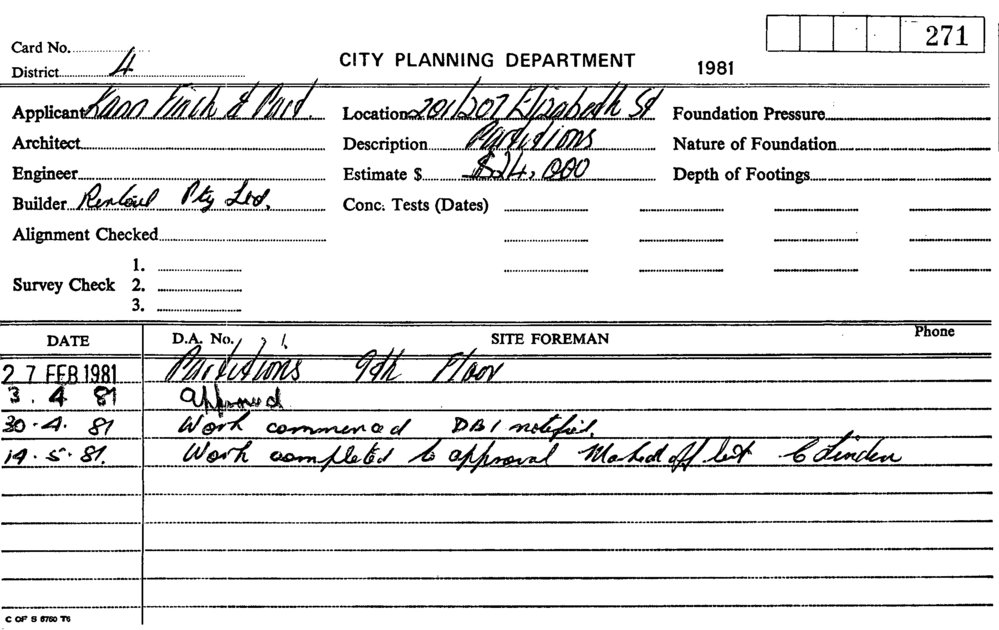 271
Card No.
District 4
CITY PLANNING DEPARTMENT
1981
Applicant Kann Finch & Part.
Location 201/207 Elizabeth St
Foundation Pressure
Architect
Description Partitions
Nature of Foundation
Engineer
Estimate $ $24,000
Depth of Footings
Builder Pty Ltd,
Conc. Tests (Dates)
Alignment Checked
Survey Check
1.
2.
3.
DATE D.A. No. SITE FOREMAN Phone
27 FEB 1981 Partitions 9th Floor
3.4 81 approved
30.4. 81 Work commenced DBI notified.
14.5.81. Work completed to approval Marked off list C Linden
C OF S 6750 T6